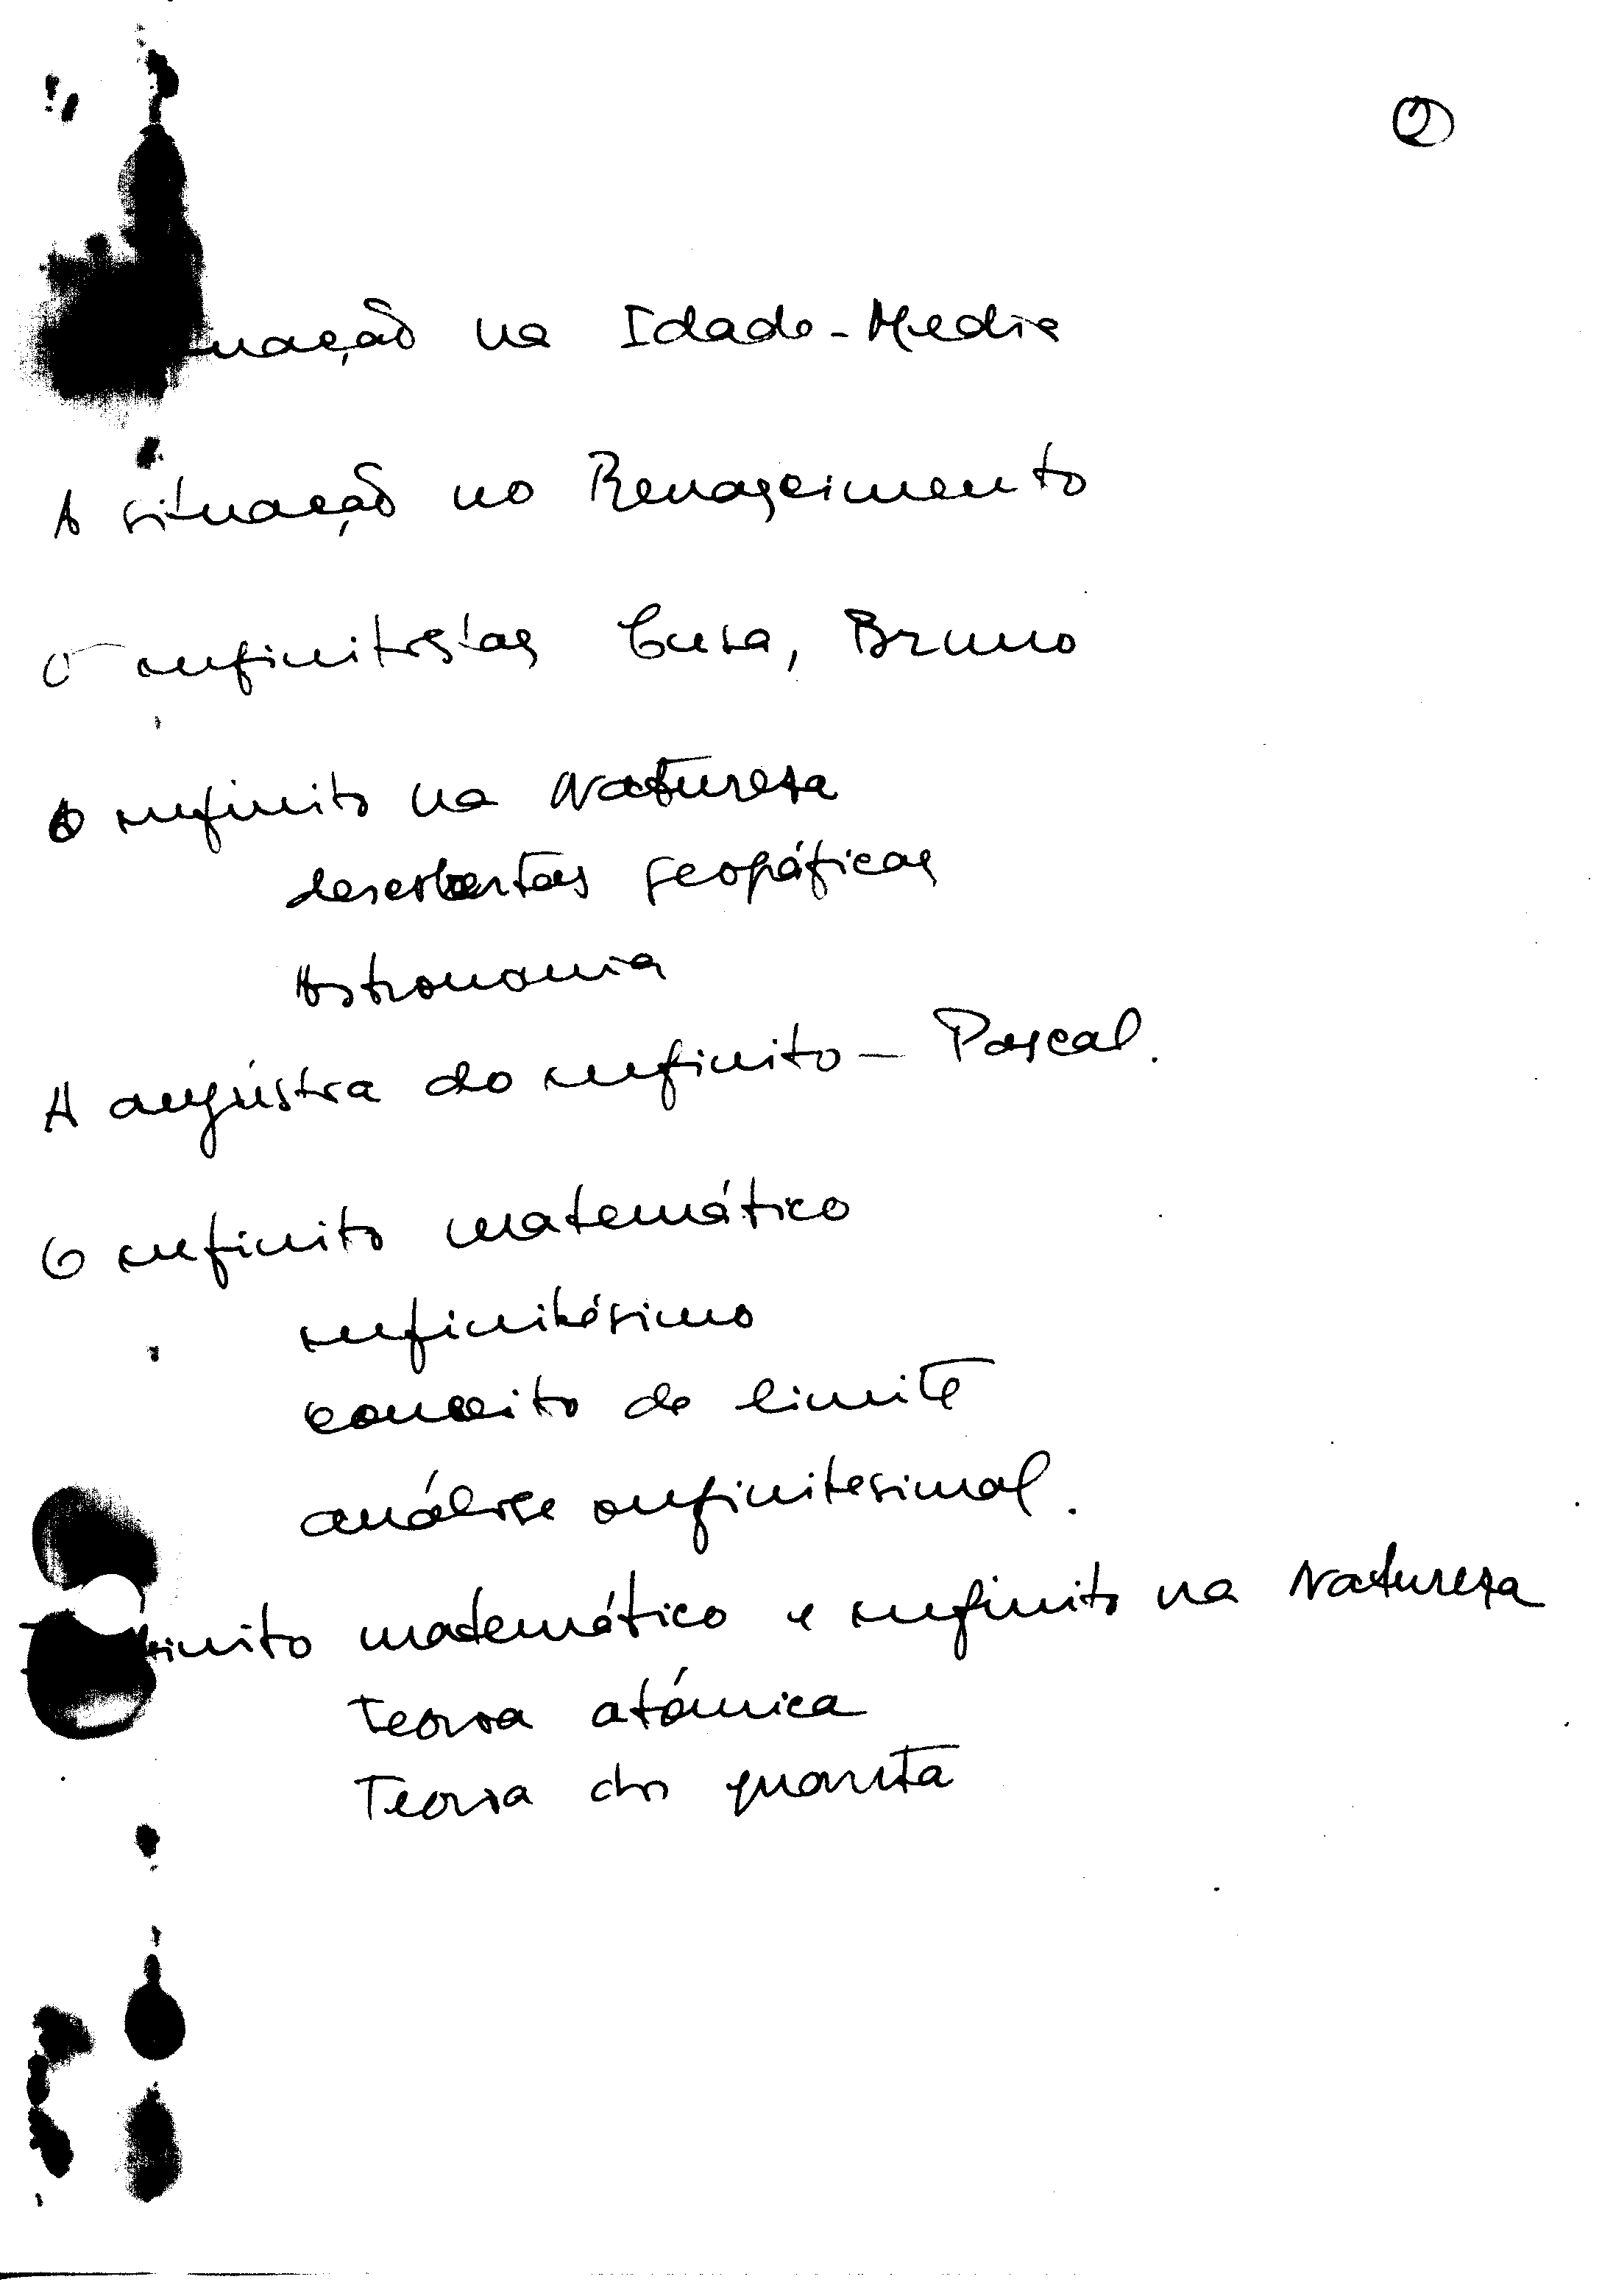 2
uação na Idade-Media
A situação no Renascimento
O infinitistas Cusa, Bruno
O infinito na Natureza
descobertas geográficas
Astronomia
A angústia do infinito - Pascal.
O infinito matemático
infinitésimo
conceito de limite
análise infinitesimal.
finito matemático e infinito na Natureza
Teoria atómica
Teoria dos quanta